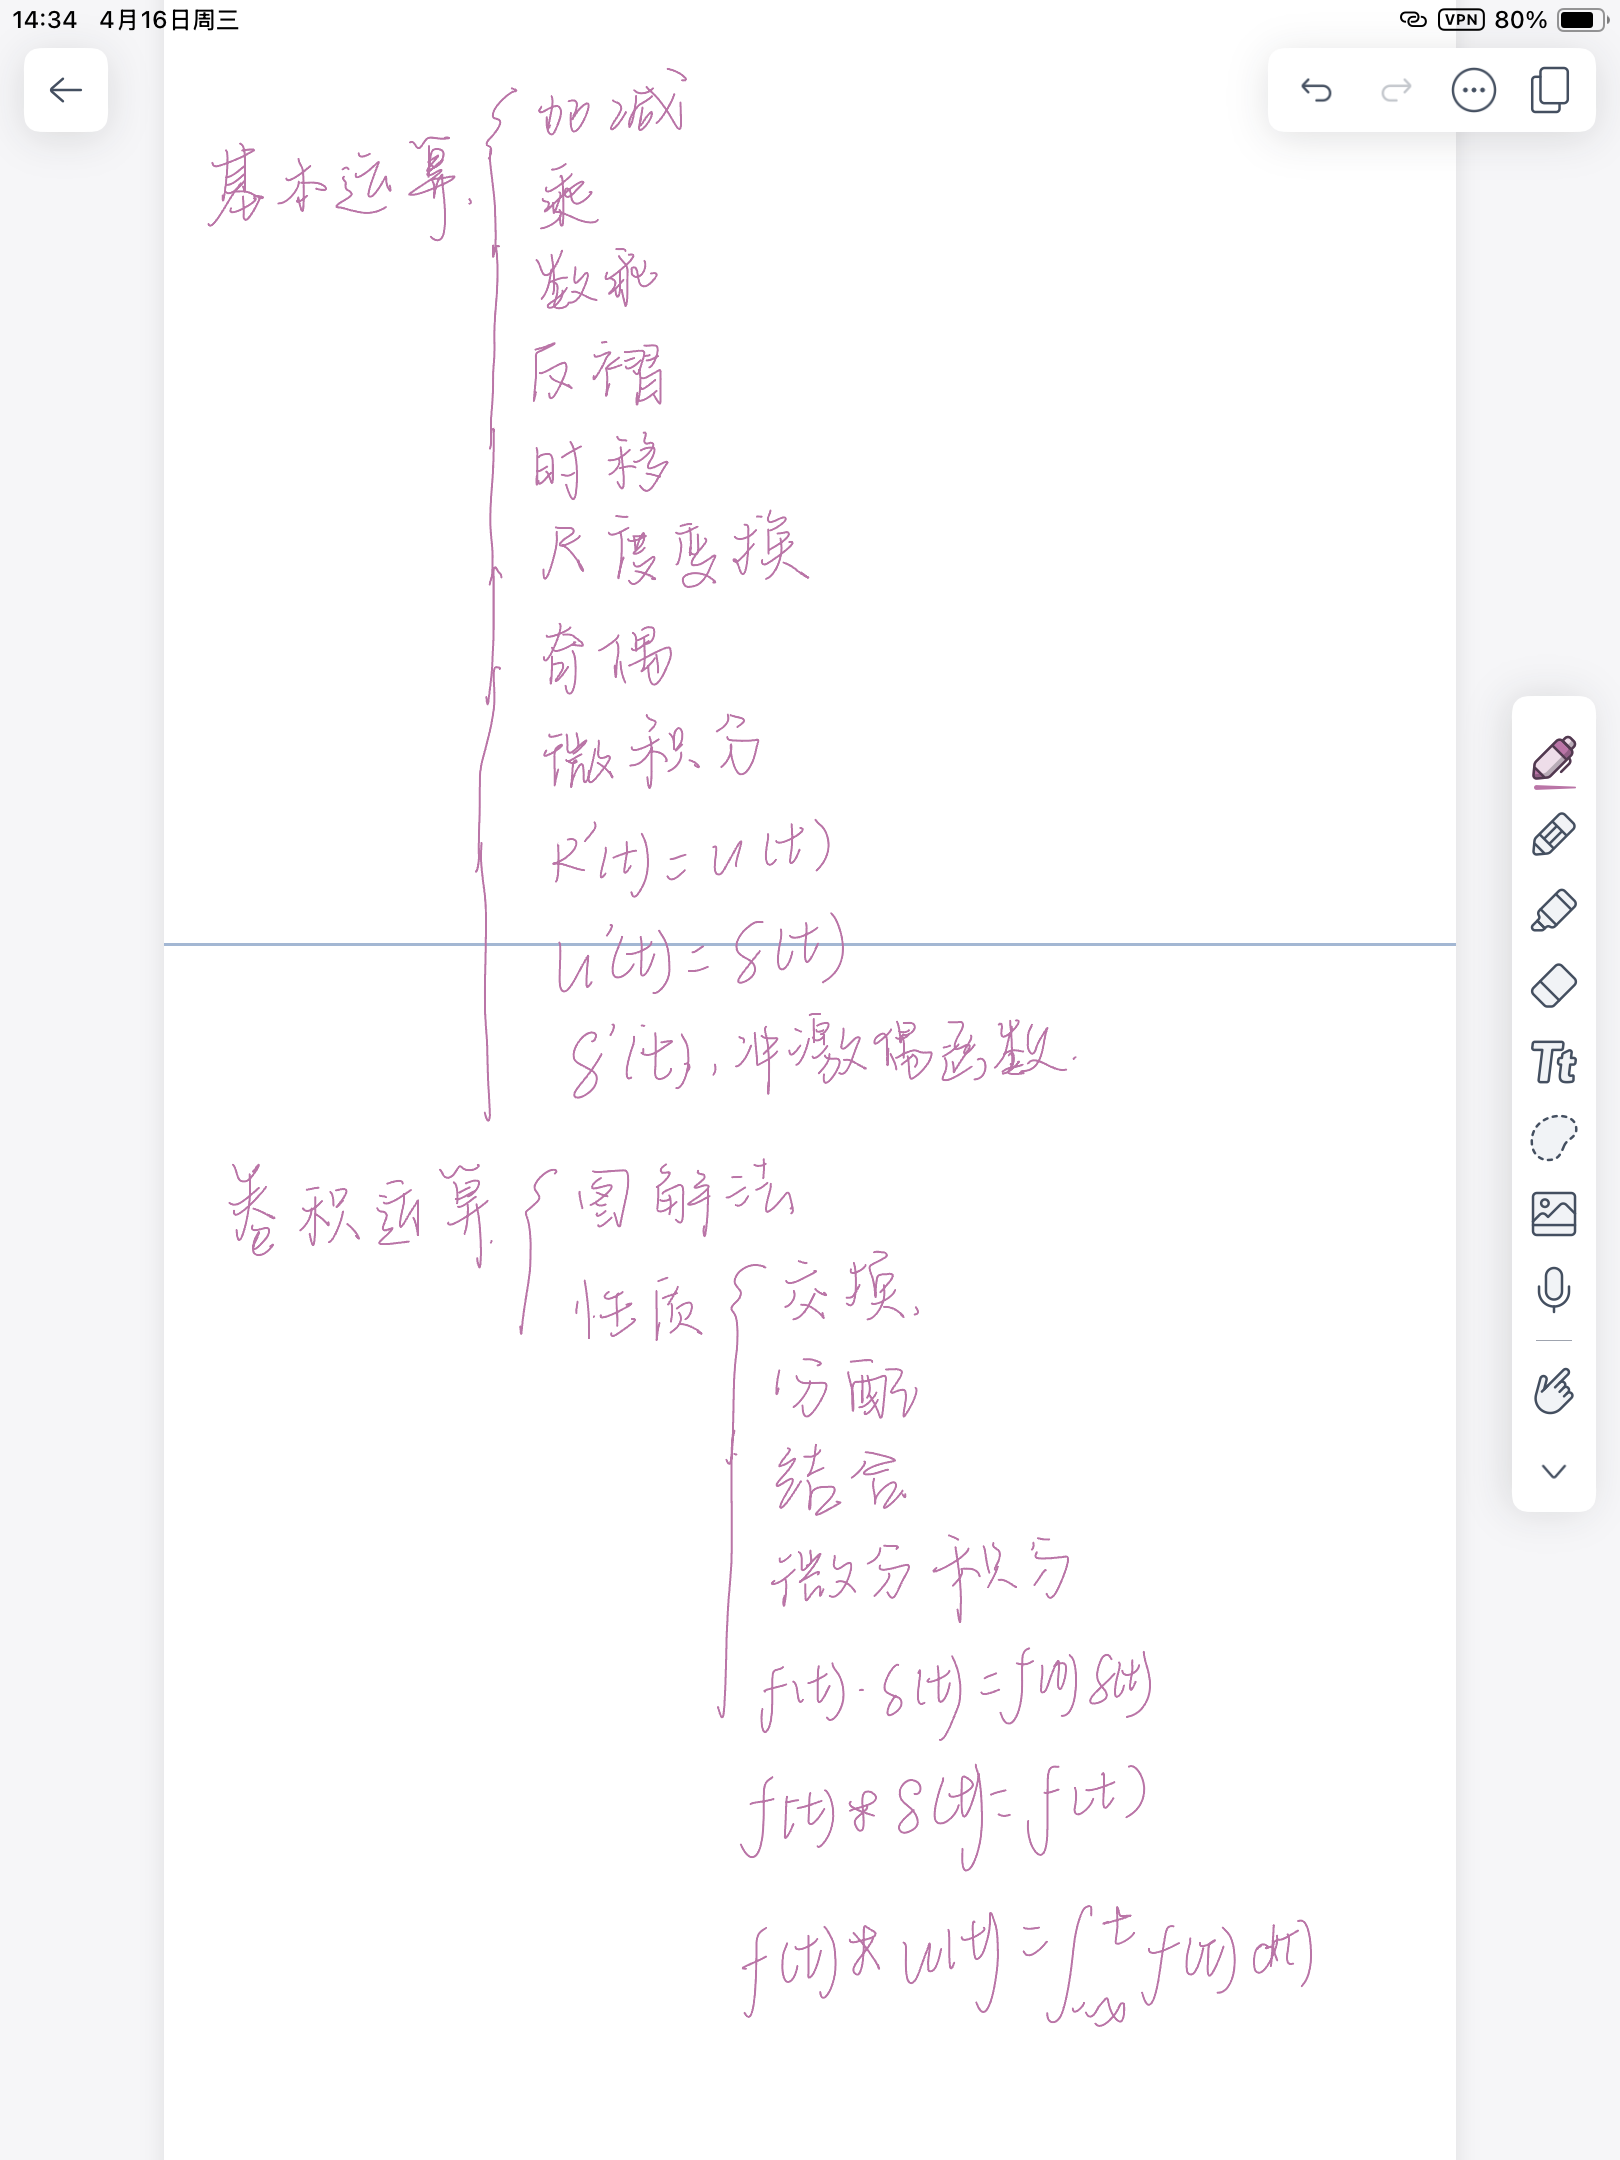 14:34 4月16日周三 VPN 80%
加减
基本运算.
乘
数乘
反褶
时移
尺度变换
奇偶
微积分
R'(t)=u(t)
u'(t)=δ(t)
δ'(t),冲激偶函数.
卷积运算. 图解法
性质 交换,
分配
结合
微分积分
f(t)·δ(t)=f(0)δ(t)
f(t)*δ(t)=f(t)
f(t)*u(t)=∫_{-∞}^{t} f(τ)d(τ)
Tt